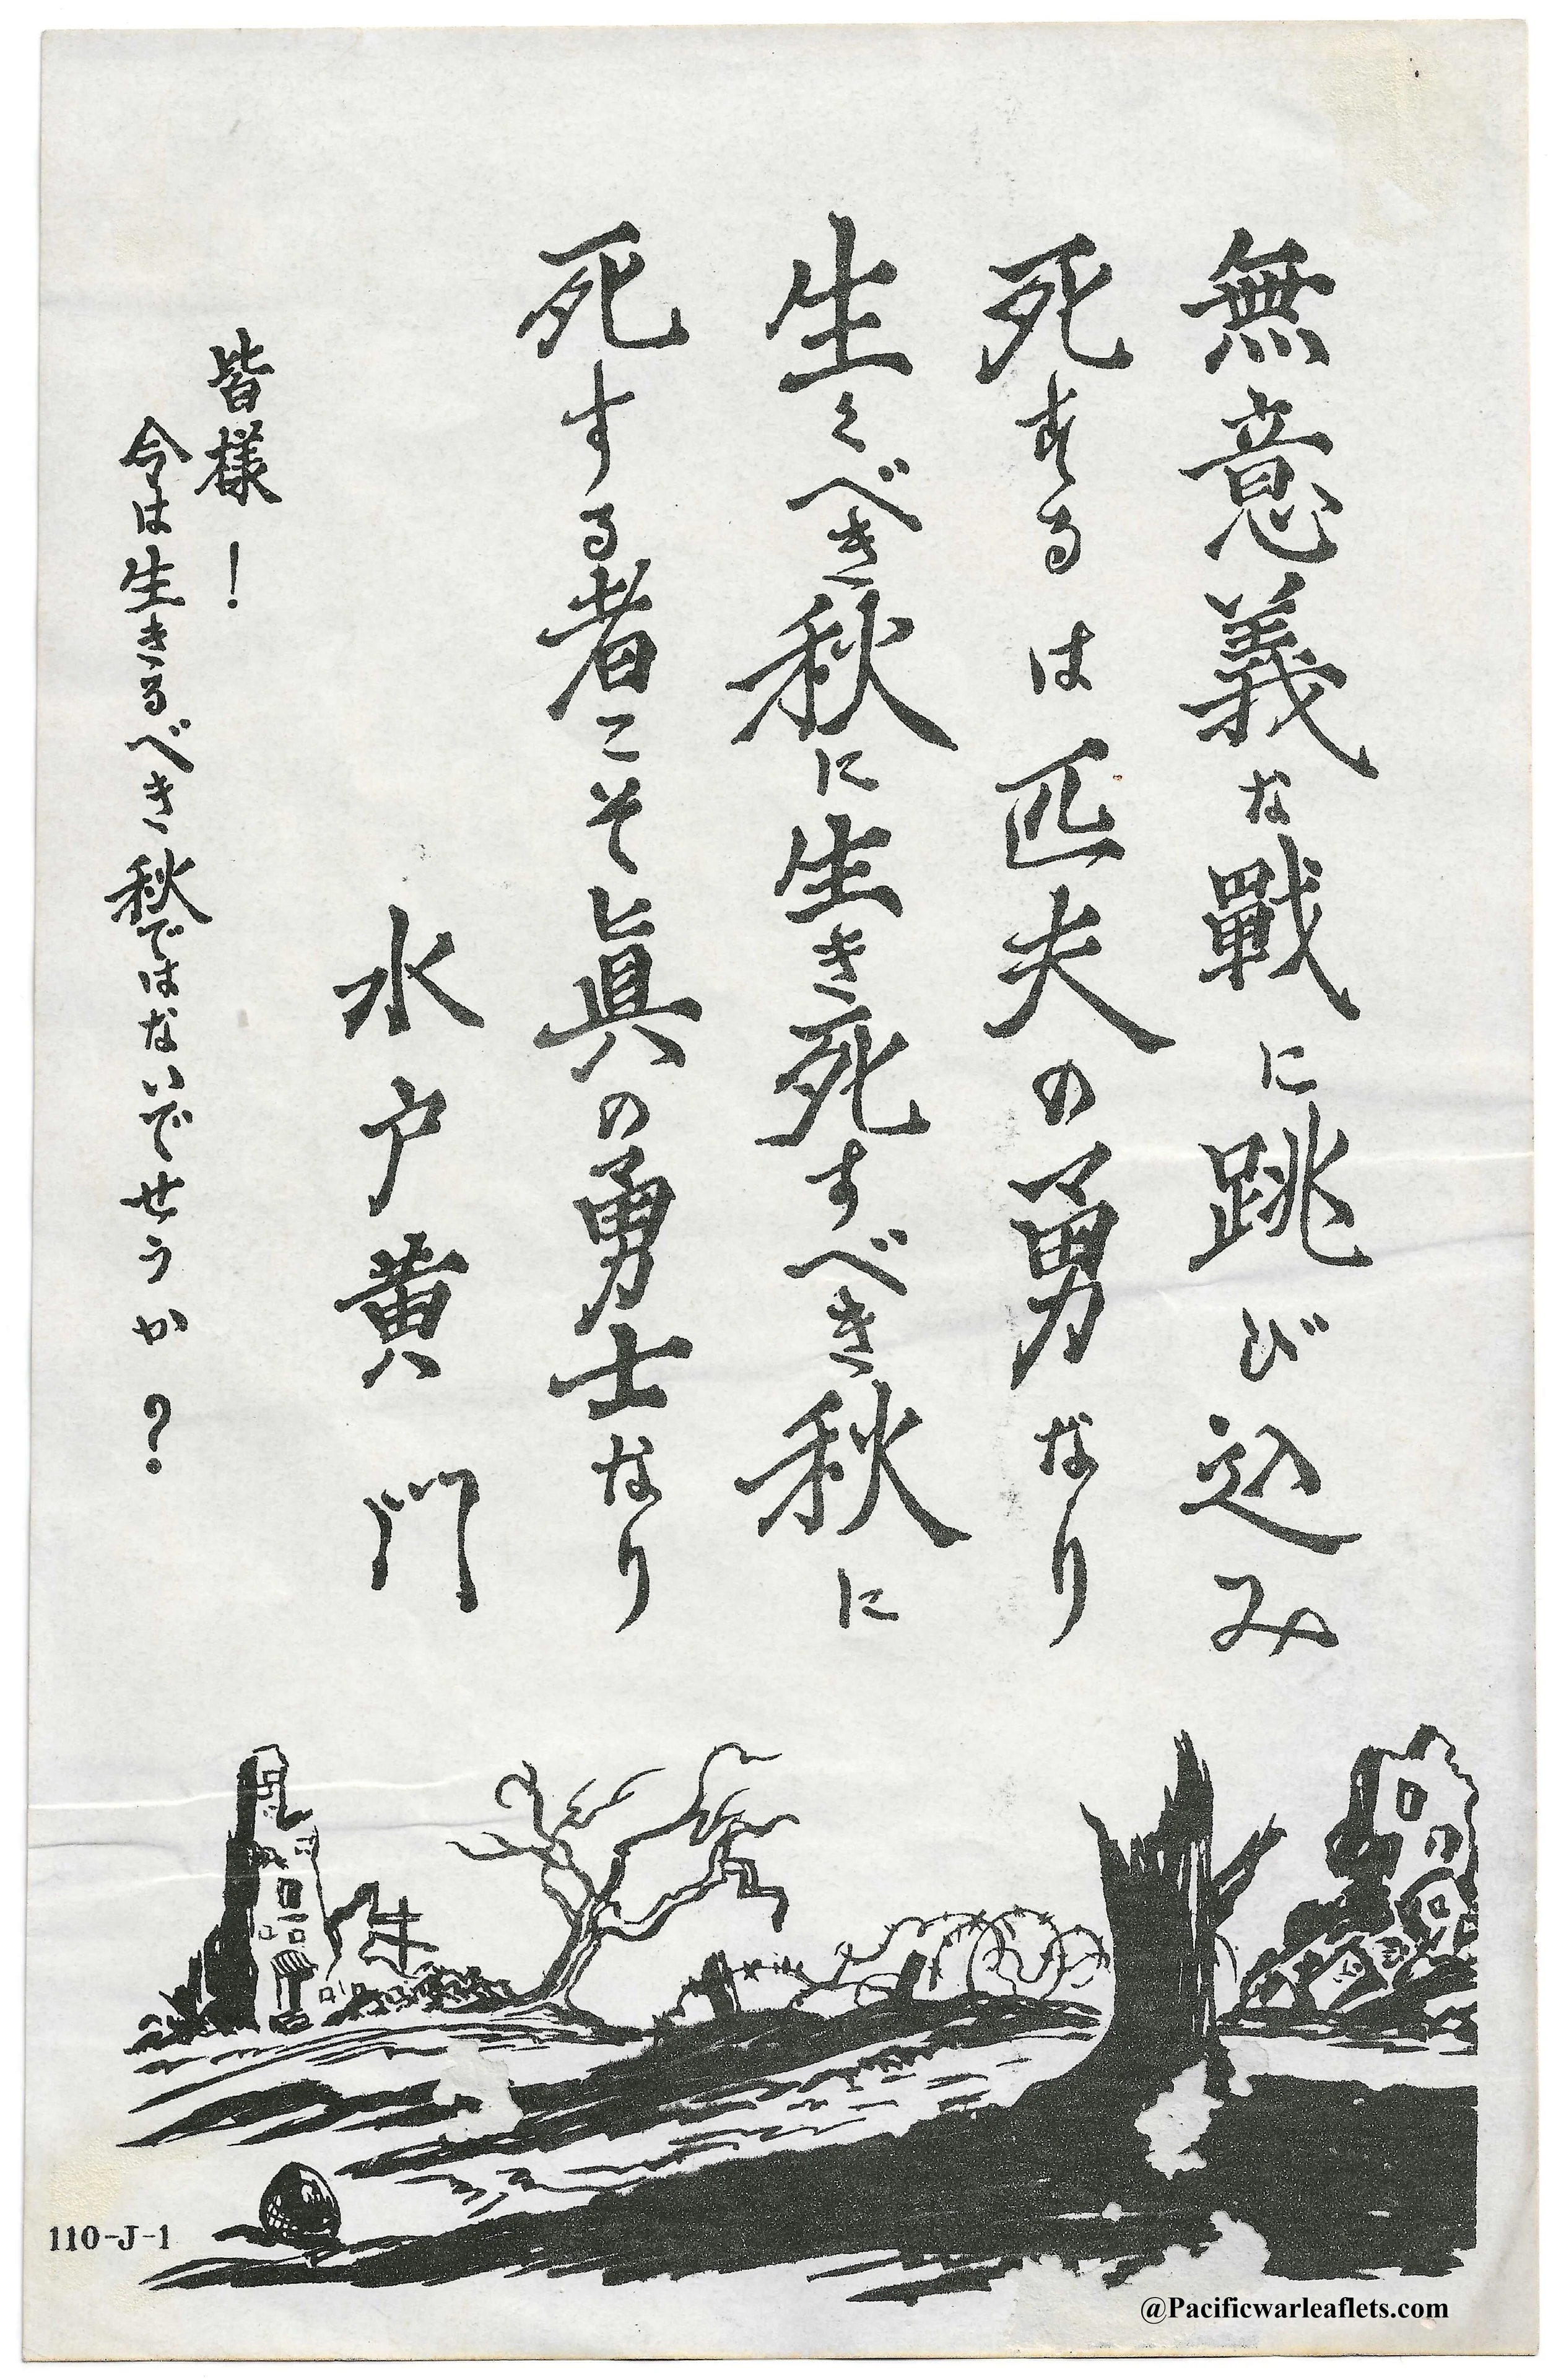 無意義な戰に跳び込み
死するは匹夫の勇なり
生くべき秋に生き死すべき秋に
死する者こそ眞の勇士なり
水戸黄門
皆様！
今は生きるべき秋ではないでせうか？
110-J-1
@Pacificwarleaflets.com